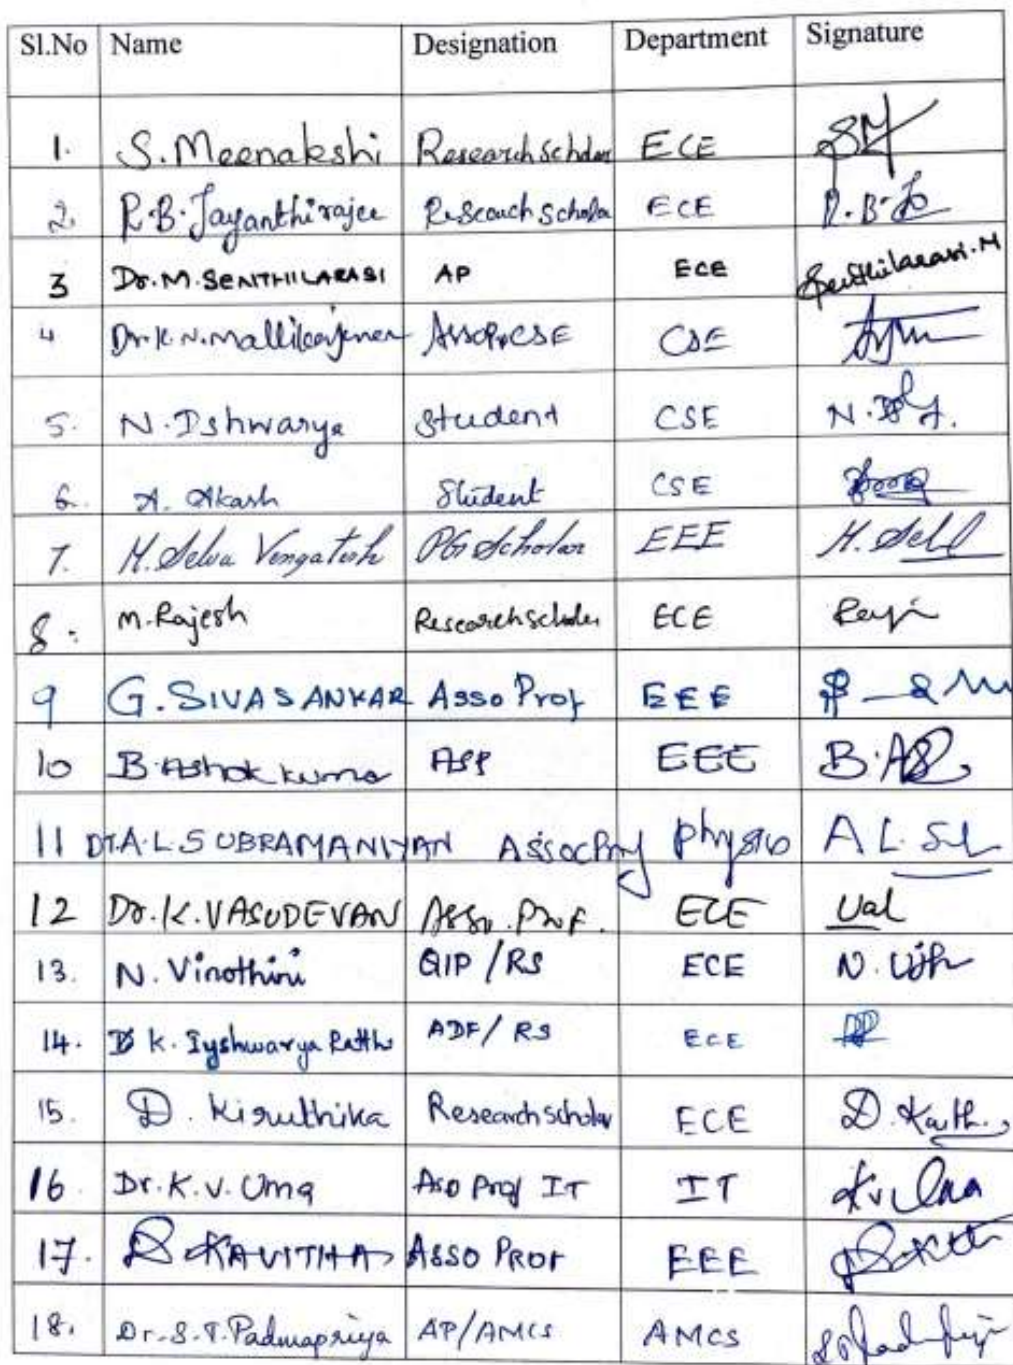 Sl.No Name Designation Department Signature
1. S. Meenakshi Research scholar ECE SM
2. R.B. Jayanthirajee Research scholar ECE R.B.
3 Dr. M. SENTHILARASI AP ECE Senthilarasi.M
4 Dr. K. N. Mallikarjunan CSE CSE
5. N. Ishwarya Student CSE N.
6. A. Akash Student CSE
7. M. Selva Vengatesh PG Scholar EEE M. Sel
8. M. Rajesh Research scholar ECE
9 G. SIVASANKAR Asso Prof EEE
10 B. Ashok kumar ASP EEE B.AS
11 Dr.A.L.SUBRAMANIYAN Assoc Prof Physics A L. S
12 Dr. K. VASUDEVAN Asso. Prof. ECE Val
13. N. Vinothini QIP /RS ECE N.
14. K. Iyshwarya Ratthi ADF/ RS ECE
15. D. Kiruthika Research scholar ECE D. Kruth.
16. Dr. K. V. Uma Aso Prof IT IT K.V. Uma
17. D KAVITHA ASSO PROF EEE
18. Dr. S. T. Padmapriya AP/AMCS AMCS